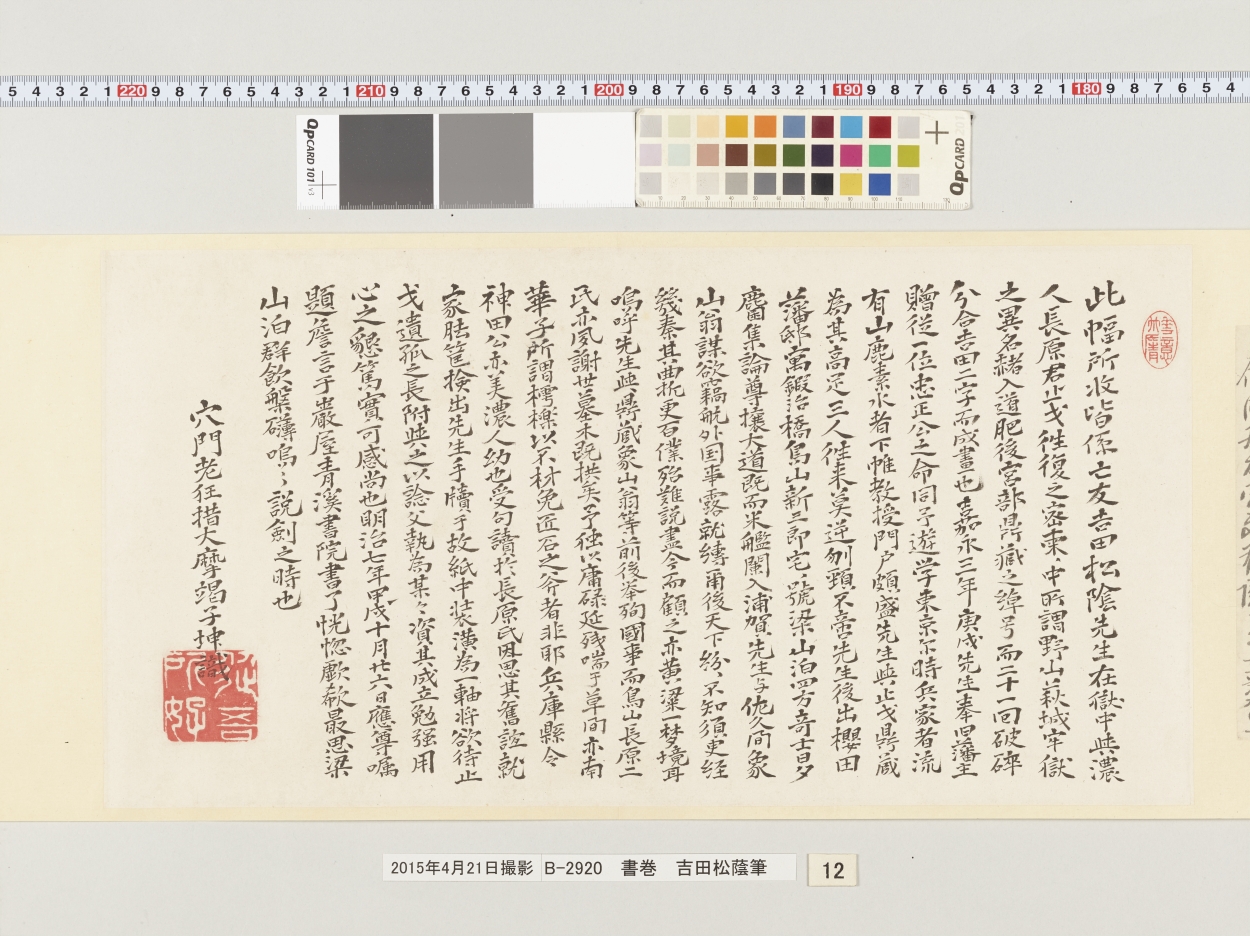 此幅所收皆係亡友吉田松陰先生在獄中與濃
人長原君止戈徃復之密柬中所謂野山萩城牢獄
之異名赭入道肥後宮部鼎藏之綽号而二十一回破碎
分合吉田二字而成畫也嘉永三年庚戌先生奉旧藩主
贈従一位忠正公之命同予遊学東京尓時兵家者流
有山鹿素水者下帷教授門戸頗盛先生與止戈鼎藏
為其高足三人徃来莫逆刎頸不啻先生後出櫻田
藩邸寓鍜冶橋鳥山新三郎宅號梁山泊四方奇士日夕
麕集論尊攘大道既而米艦闌入浦賀先生与佐久间象
山翁謀欲竊航外国事露就縛甭後天下紛々不知須更経
幾秦其曲折更百僕殆難説盡今而顧之亦黄粱一梦境耳
嗚呼先生與鼎藏象山翁等前後奉殉國事而鳥山長原二
民亦夙謝世墓木既拱矣予独以庸碌延残喘于草间亦南
華子所謂樗櫟以不材免匠石之斧者非耶兵庫縣令
神田公亦美濃人幼也受句讀於長原氏因思其舊誼就
家胠筐検出先生手牘于故紙中装潢為一軸将欲待止
戈遺孤之長附與之以諗父執為某々資其成立勉强用
心之懇篤實可感尚也明治七年甲戌十月廿六日應尊嘱
題詹言于巌屋青溪書院書了恍惚歔欷最思梁
山泊群飲槃礴嗚々説劍之時也
穴門老狂措大摩竭子坤識
2015年4月21日撮影 B-2920 書巻 吉田松蔭筆 12
5 4 3 2 1 220 9 8 7 6 5 4 3 2 1 210 9 8 7 6 5 4 3 2 1 200 9 8 7 6 5 4 3 2 1 190 9 8 7 6 5 4 3 2 1 180 9 8 7 6 5 4
QPCARD 101 v3
QPCARD 201